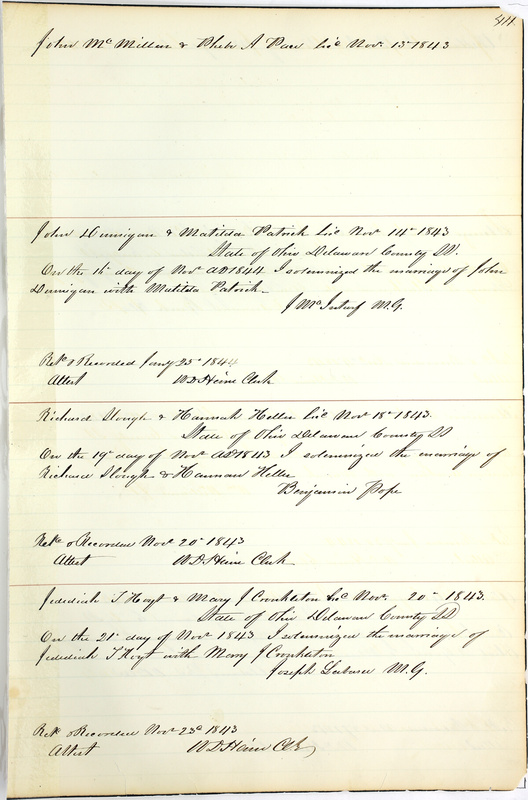 John McMillen & Phebe A Pace Lic Nov. 13th 1843
John Dunigan & Matilda Patrick Lic Nov 14th 1843
State of Ohio Delaware County SS.
On the 16 day of Nov AD 1844 I solemnized the marriage of John
Dunigan with Matilda Patrick
J Mc M.G.
Retd & Recorded Jany 25th 1844
Attest W D Heim Clerk
Richard Slough & Hannah Heller Lic Nov 18th 1843.
State of Ohio Delaware County SS
On the 19th day of Nov AD 1843 I solemnized the marriage of
Richard Slough & Hannah Heller
Benjamin Pope
Retd & Recorded Nov 20th 1843
Attest W D Heim Clerk
Jedediah T Hoyt & Mary J Cronkleton Lic Nov. 20th 1843.
State of Ohio Delaware County SS
On the 21st day of Nov 1843 I solemnized the marriage of
Jedediah T Hoyt with Mary J Cronkleton
Joseph M.G.
Retd & Recorded Nov 23d 1843
Attest W D Heim Clk